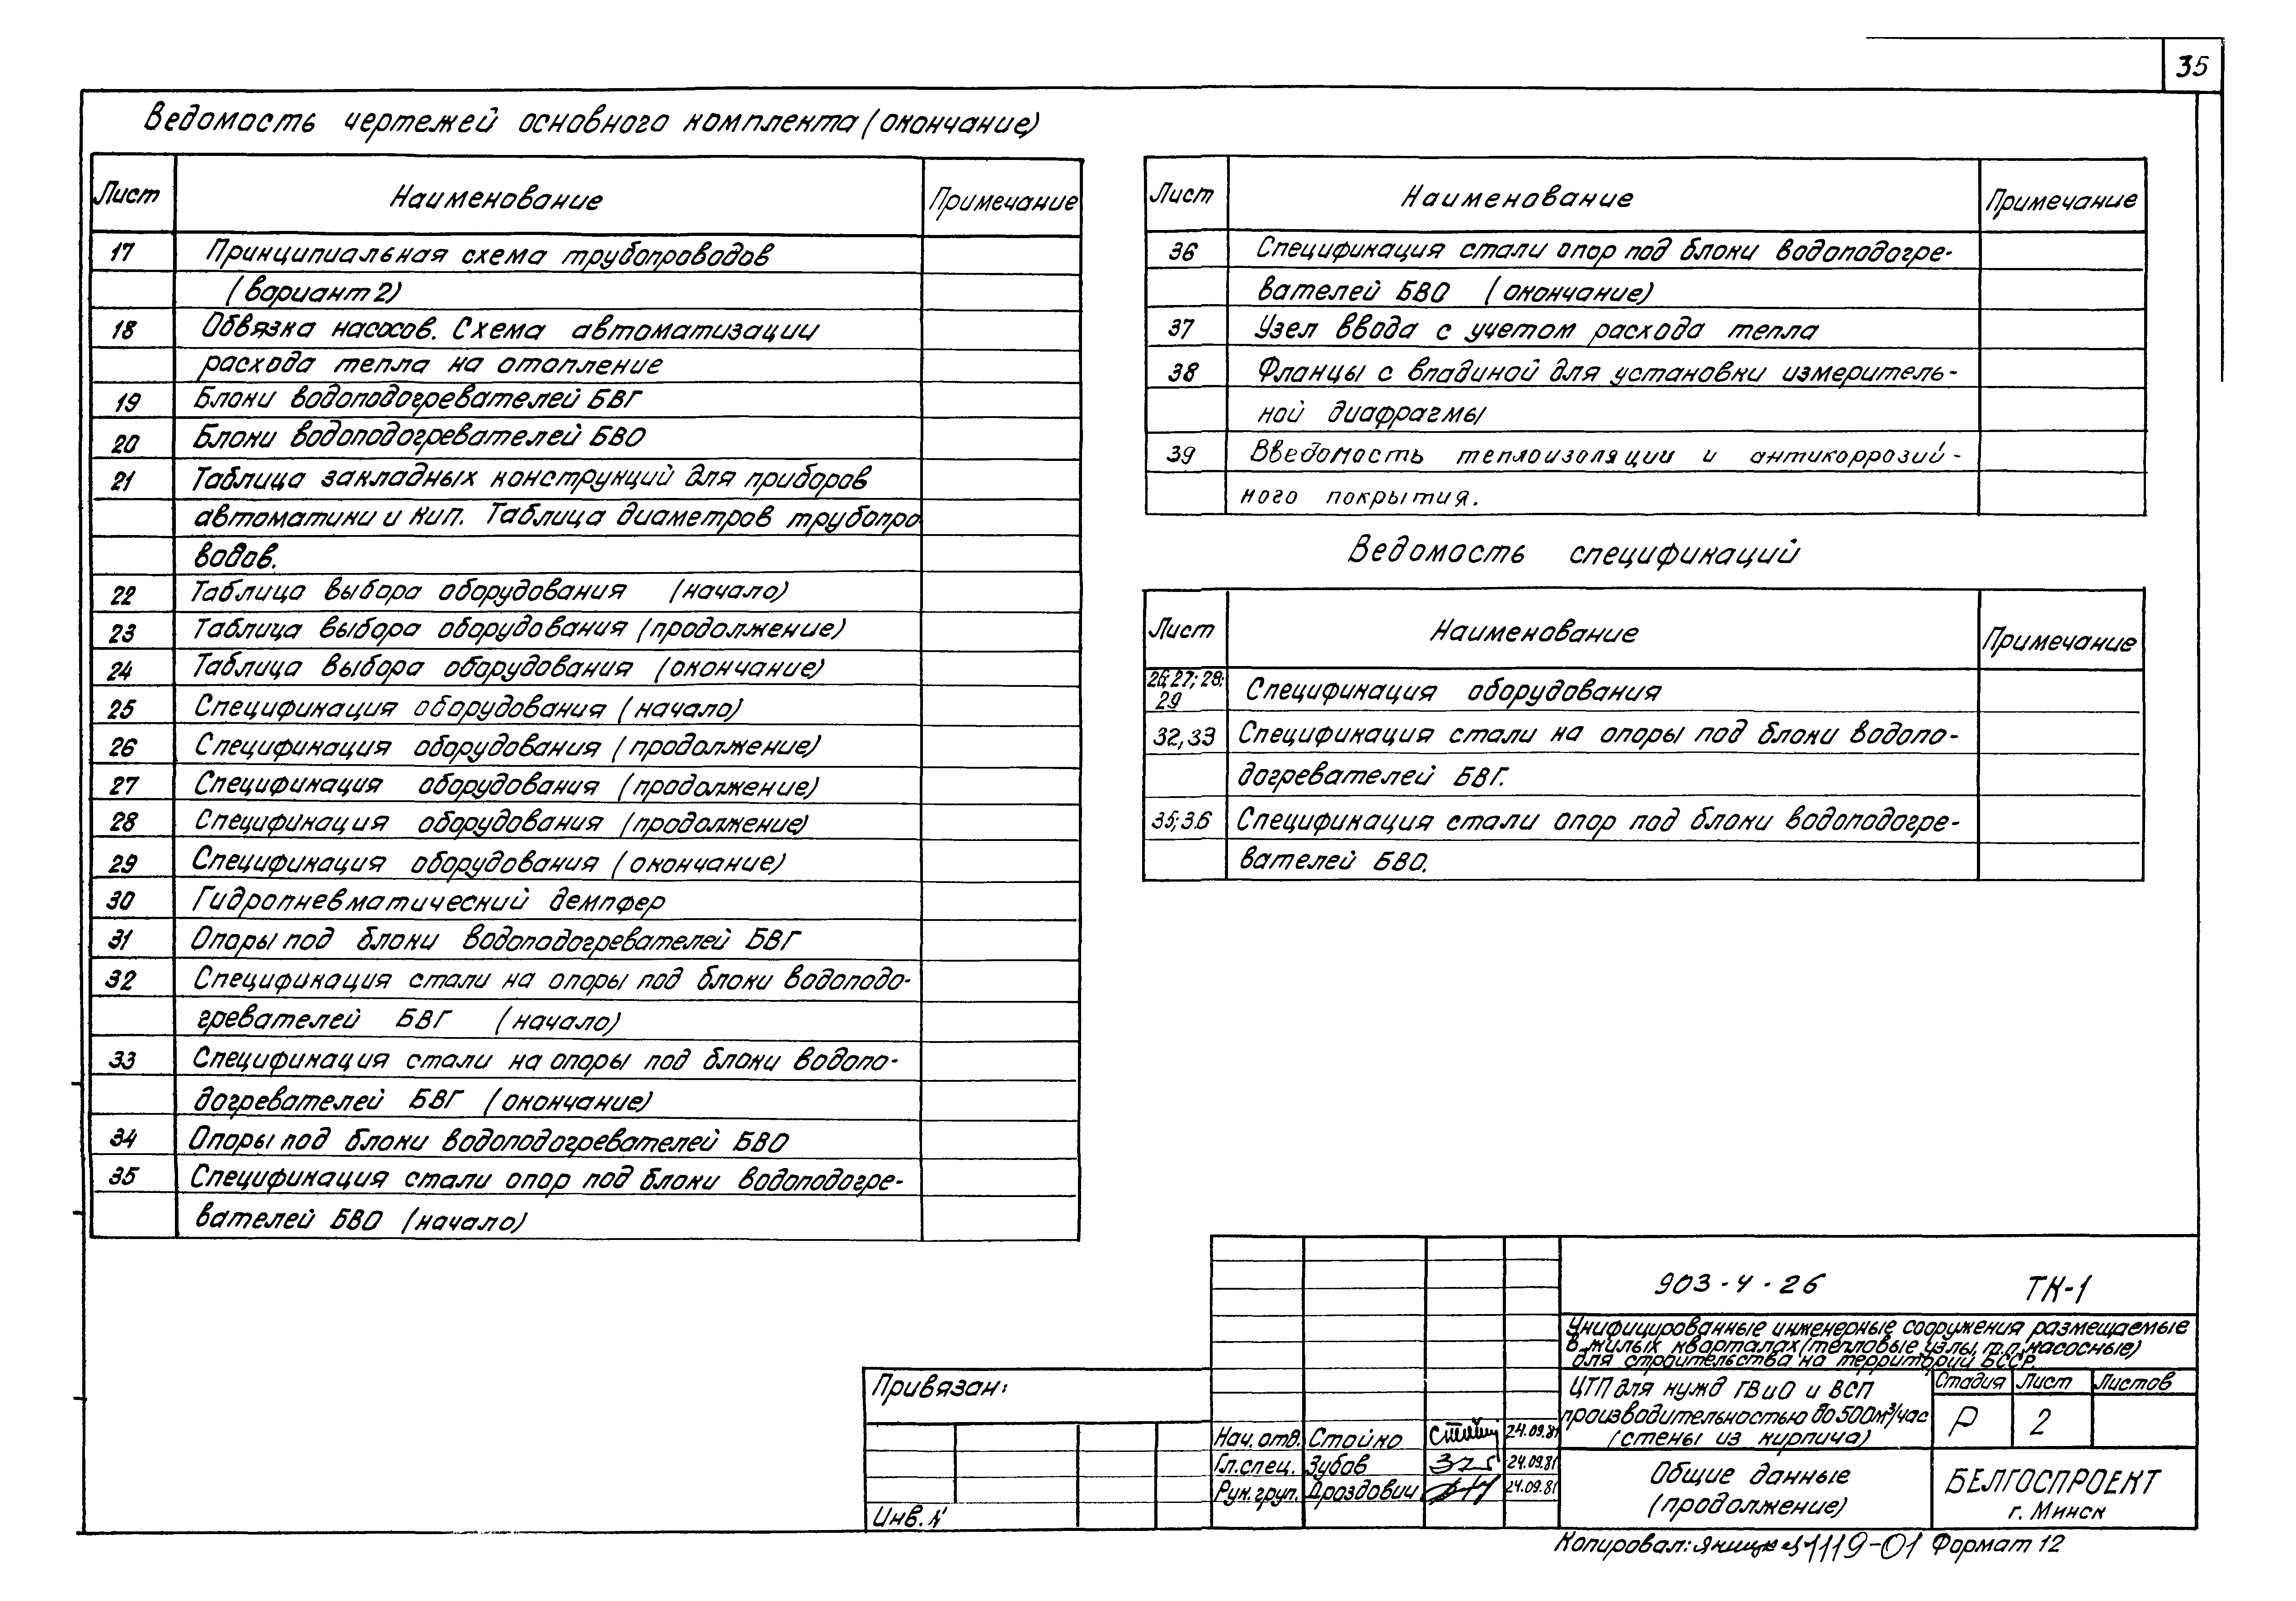 35
Ведомость чертежей основного комплекта (окончание)
Лист Наименование Примечание
17 Принципиальная схема трубопроводов
(вариант 2)
18 Обвязка насосов. Схема автоматизации
расхода тепла на отопление
19 Блоки водоподогревателей БВГ
20 Блоки водоподогревателей БВО
21 Таблица закладных конструкций для приборов
автоматики и кип. Таблица диаметров трубопро
водов.
22 Таблица выбора оборудования (начало)
23 Таблица выбора оборудования (продолжение)
24 Таблица выбора оборудования (окончание)
25 Спецификация оборудования (начало)
26 Спецификация оборудования (продолжение)
27 Спецификация оборудования (продолжение)
28 Спецификация оборудования (продолжение)
29 Спецификация оборудования (окончание)
30 Гидропневматический демпфер
31 Опоры под блоки водоподогревателей БВГ
32 Спецификация стали на опоры под блоки водоподо-
гревателей БВГ (начало)
33 Спецификация стали на опоры под блоки водопо-
догревателей БВГ (окончание)
34 Опоры под блоки водоподогревателей БВО
35 Спецификация стали опор под блоки водоподогре-
вателей БВО (начало)
Лист Наименование Примечание
36 Спецификация стали опор под блоки водоподогре-
вателей БВО (окончание)
37 Узел ввода с учетом расхода тепла
38 Фланцы с впадиной для установки измеритель-
ной диафрагмы
39 Введомость теплоизоляции и антикоррозий-
ного покрытия.
Ведомость спецификаций
Лист Наименование Примечание
26; 27; 28;
29 Спецификация оборудования
32, 33 Спецификация стали на опоры под блоки водопо-
догревателей БВГ.
35; 36 Спецификация стали опор под блоки водоподогре-
вателей БВО.
903-4-26 ТК-1
Унифицированные инженерные сооружения размещаемые
в жилых кварталах (тепловые узлы, т.п., насосные)
для строительства на территории БССР.
ЦТП для нужд ГВиО и ВСП
производительностью до 500м³/час
(стены из кирпича)
Стадия Лист Листов
Р 2
Общие данные
(продолжение)
БЕЛГОСПРОЕКТ
г. Минск
Привязан:
Инв. №
Нач. отд. Стойко 24.09.81
Гл. спец. Зубов 24.09.81
Рук. груп. Дроздович 24.09.81
Копировал: 1119-01 Формат 12